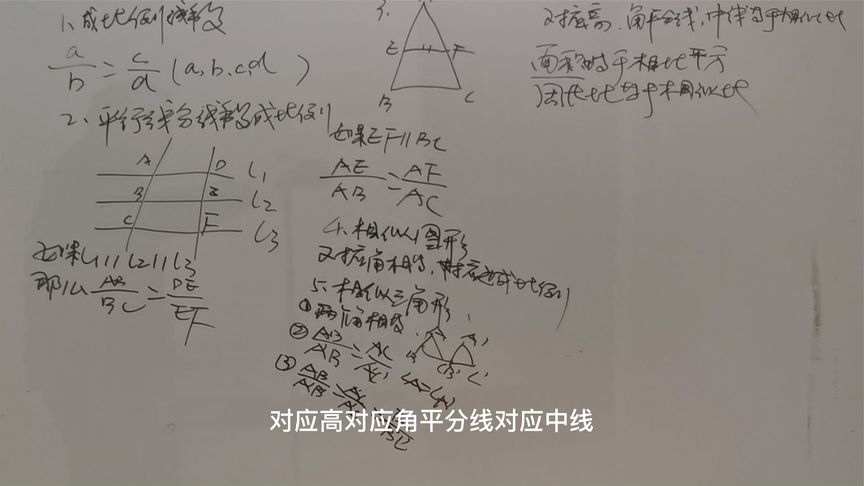 1、成比例线段
a/b=c/d (a,b,c,d)
2、平行线分线段成比例
A D l1
B E l2
C F l3
如果l1//l2//l3
那么AB/BC=DE/EF
3.
A
E F
B C
如果EF//BC
AE/AB=AF/AC
4.相似图形
对应角相等,对应边成比例
5.相似三角形
①两角相等
②AB/A'B'=AC/A'C' ∠A=∠A'
③AB/A'B'=
对应高、角平分线,中线等于相似比
面积等于相似比平方
周长比等于相似比
对应高对应角平分线对应中线